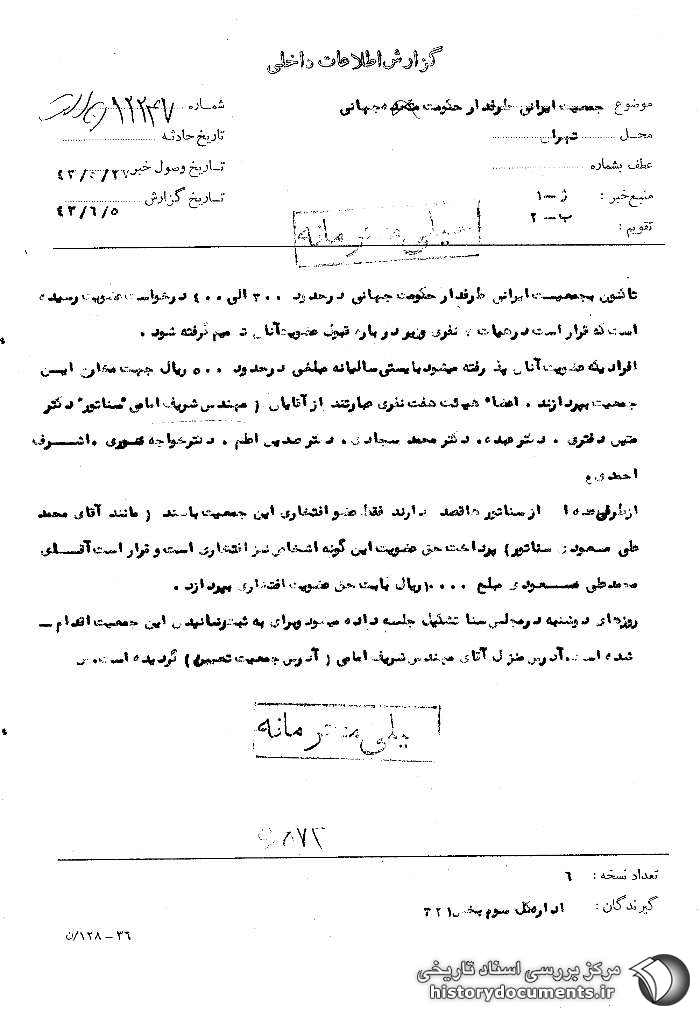 گزارش اطلاعات داخلی
موضوع جمعیت ایرانی طرفدار حکومت متحده جهانی
شماره ۱۲۲۴۷
محل تهران
تاریخ حادثه
عطف بشماره
تاریخ وصول خبر ۴۳/۴/۲۷
منبع خبر : ژ – ۱
تاریخ گزارش ۴۳/۶/۵
تقویم : ب – ۲
خیلی محرمانه
تاکنون بجمعیت ایرانی طرفدار حکومت جهانی درحدود ۳۰۰ الی ۴۰۰ درخواست عضویت رسیده
است که قرار است درهیات ۷ نفری وزیر درباره قبول عضویت آنان تصمیم گرفته شود .
افرادیکه عضویت آنان پذیرفته میشود بایستی سالیانه مبلغی درحدود ۵۰۰ ریال جهت مخارج ایسن
جمعیت بپردازند . اعضاء هیئت هفت نفری عبارتند از آقایان ( مهندس شریف امامی "سناتور" دکتر
متین دفتری . دکتر عبده. دکتر محمد سجادی. دکتر صدیق اعلم . دکتر خواجه نوری . اشــرف
احمدی )
ازطرفی عده ا از سناتورها قصد دارند فقط عضو افتخاری این جمعیت باشند ( مانند آقای محمد
علی مسعودی سناتور) پرداخت حق عضویت این گونه اشخاص نیز افتخاری است و قرار است آقــای
محمدعلی مسعودی مبلغ ۱۰۰۰۰ ریال بابت حق عضویت افتخاری بپردازد .
روزهای دوشنبه درمجلس سنا تشکیل جلسه داده میشود وبرای به ثبت رسانیدن این جمعیت اقدام –
شده است .آدرس منزل آقای مهندس شریف امامی ( آدرس جمعیت تعیین ) گردیده است.
خیلی محرمانه
تعداد نسخه : ۶
گیرندگان : اداره کل سوم بخش ۳۲۱
۳۶ – ۱۲۸/ن
مرکز بررسی اسناد تاریخی
historydocuments.ir